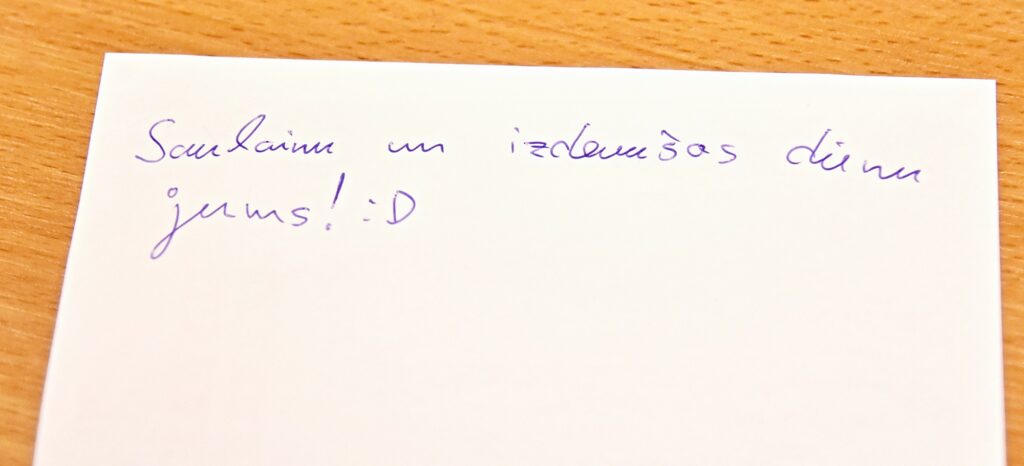 Saulainu un izdevušos dienu
jums! :D